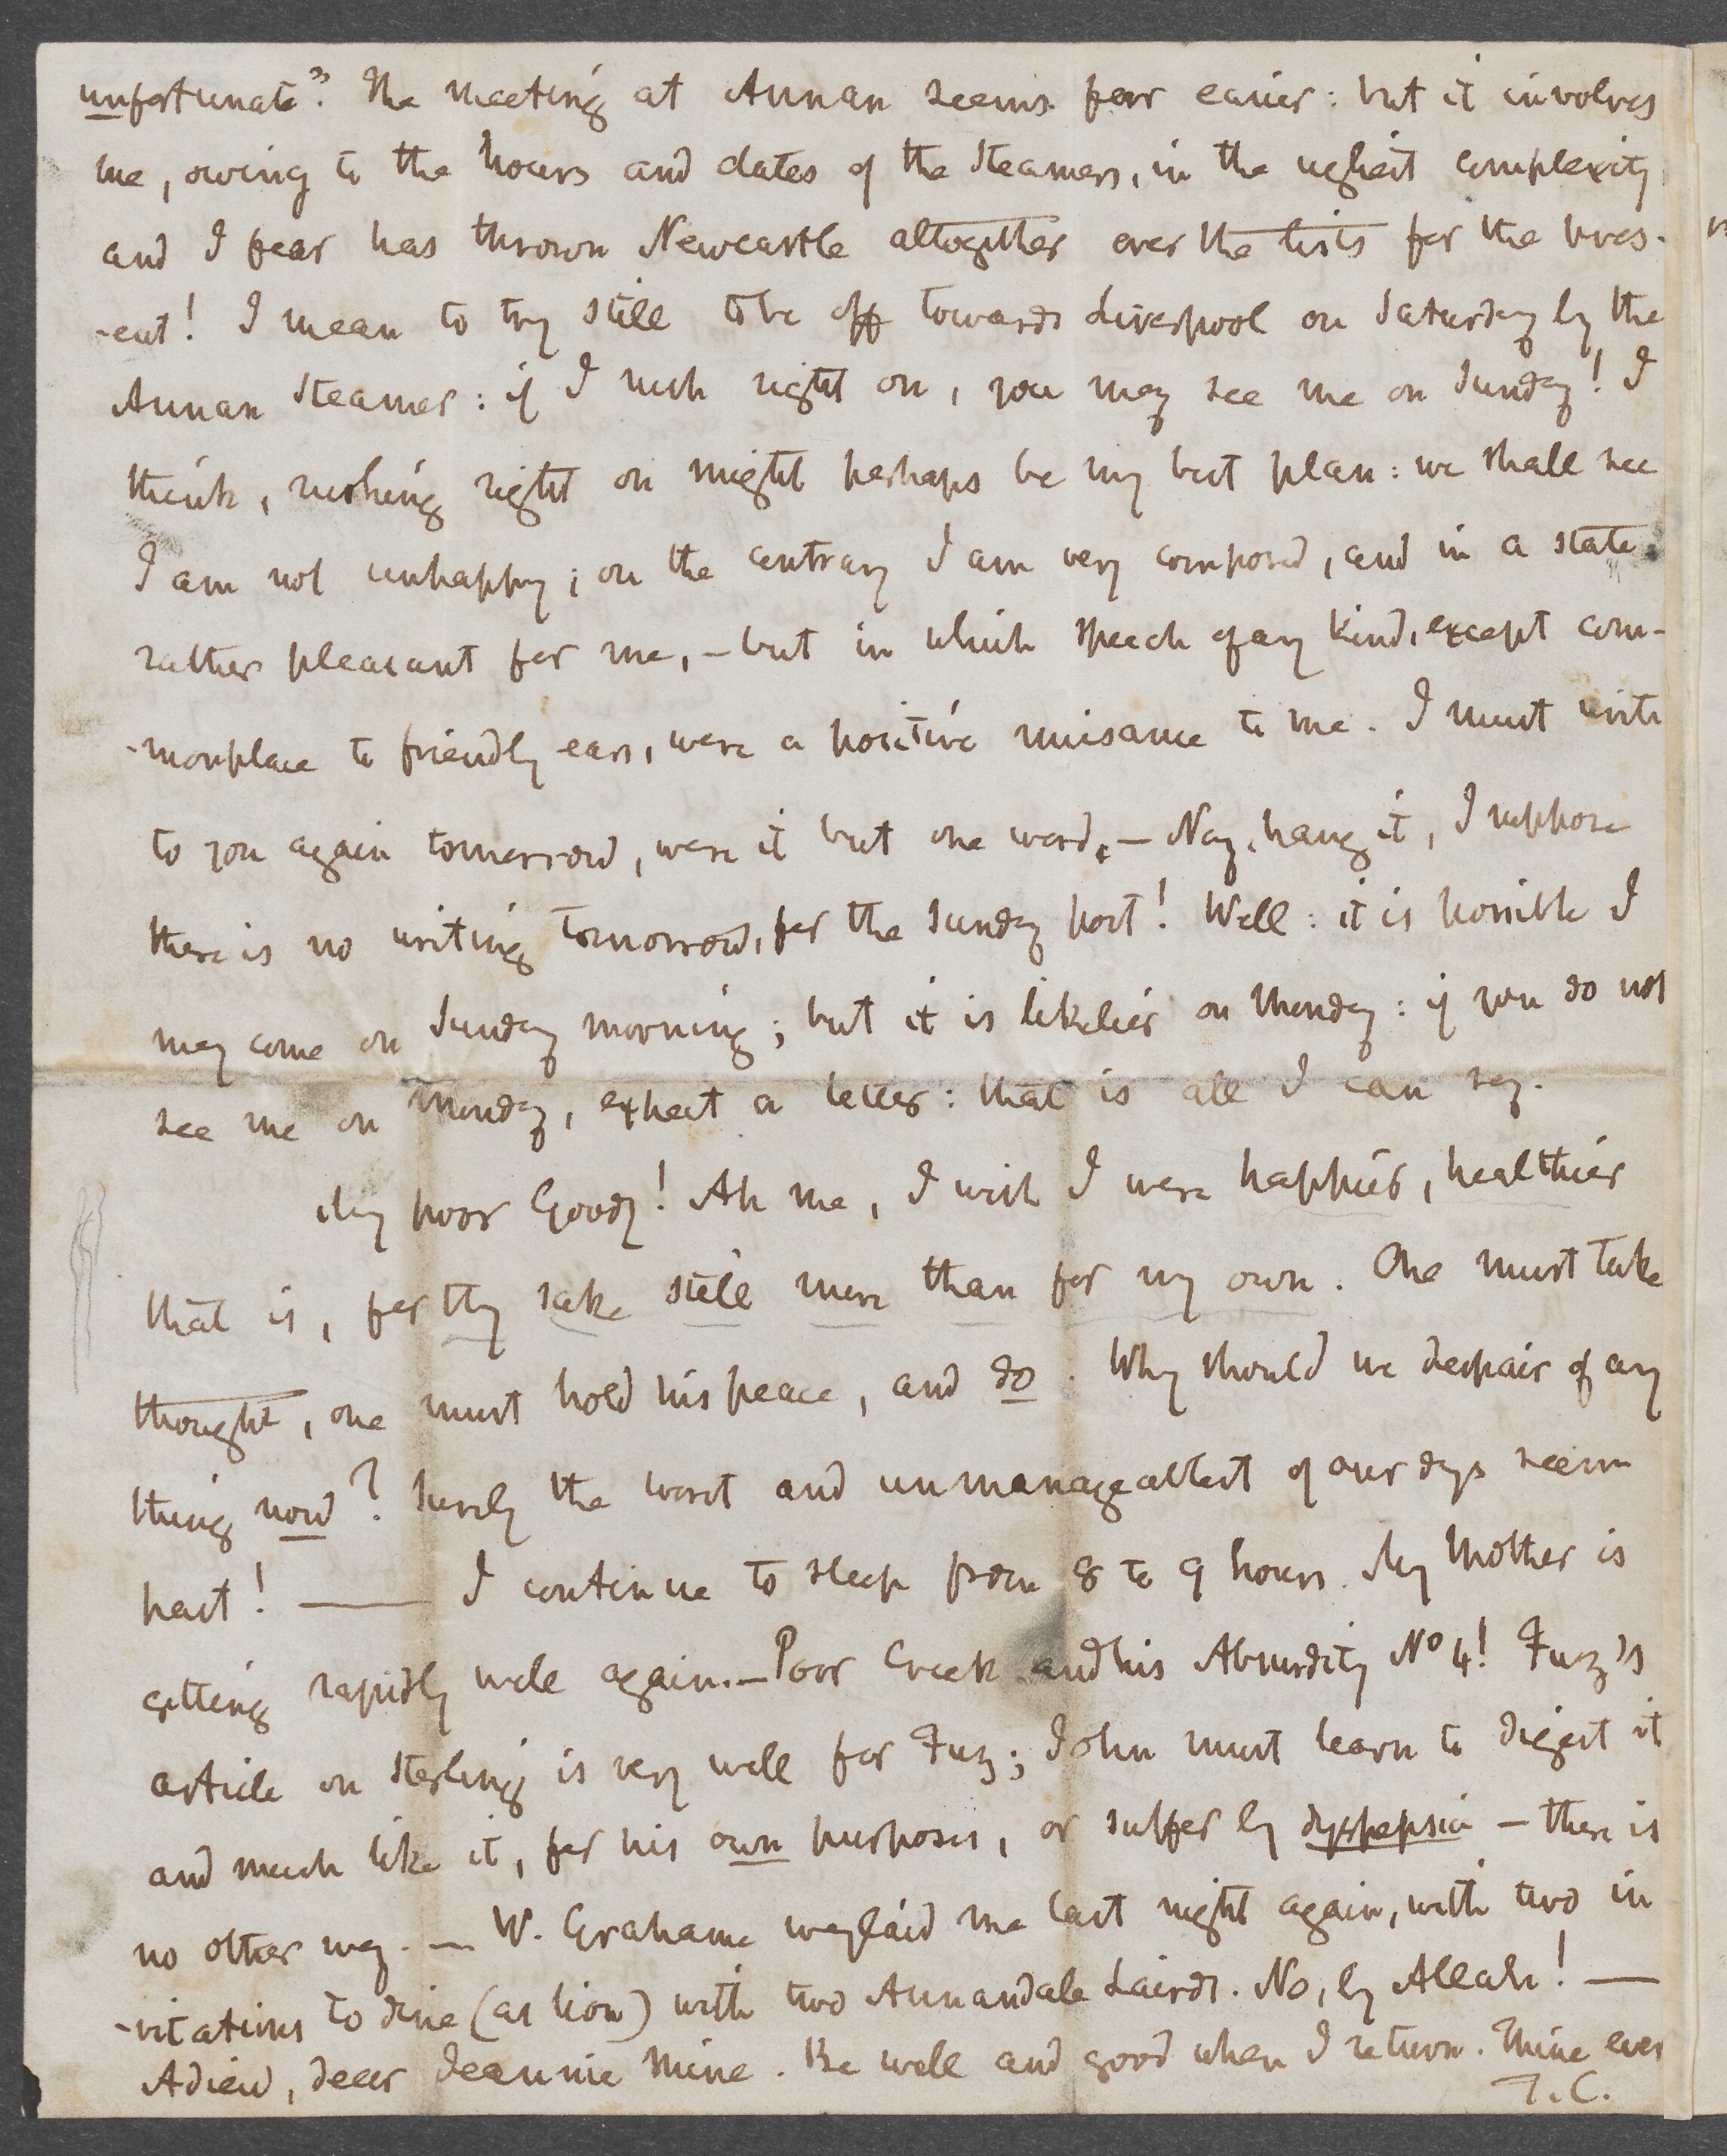 unfortunate"? The meeting at Annan seems far easier: but it involves
me, owing to the hours and dates of the steamers, in the ugliest complexity
and I fear has thrown Newcastle altogether over the lists for the pres-
-ent! I mean to try still to be off towards Liverpool on Saturday by the
Annan Steamer: if I rush right on, you may see me on Sunday! I
think, rushing right on might perhaps be my best plan: we shall see
I am not unhappy; on the contrary I am very composed, and in a state
rather pleasant for me, – but in which speech of any kind, except com-
-monplace to friendly ears, were a positive nuisance to me. I must write
to you again tomorrow, were it but one word. – Nay, hang it, I suppose
there is no writing tomorrow, for the Sunday post! Well: it is possible I
may come on Sunday morning; but it is likelier on Monday: if you do not
see me on Monday, expect a letter: that is all I can say.
My poor Goody! Ah me, I wish I were happier, healthier
that is, for thy sake still more than for my own. One must take
thought, one must hold his peace, and do. Why should we despair of any
thing now? Surely the worst and unmanageablest of our days seem
past! — I continue to sleep from 8 to 9 hours. My Mother is
getting rapidly well again. – Poor Creek and his Absurdity No 4! Fuz's
article on Sterling is very well for Fuz; John must learn to digest it
and much like it, for his own purposes, or suffer by dyspepsia – there is
no other way. – W. Grahame waylaid me last night again, with two in
-vitations to dine (as lion) with two Annandale Lairds. No, by Allah! —
Adieu, dear Jeannie mine. Be well and good when I return. Thine ever
T.C.